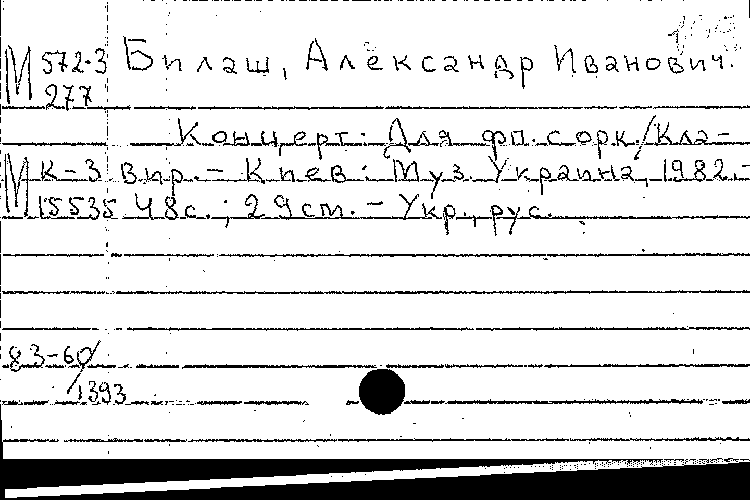 М 572-3 Билаш, Александр Иванович.
277
Концерт: Для фп. с орк./Кла-
М К-3 вир. - Киев: Муз. Украина, 1982.-
15535 48с.; 29 см. - Укр., рус.
83-60/
1393